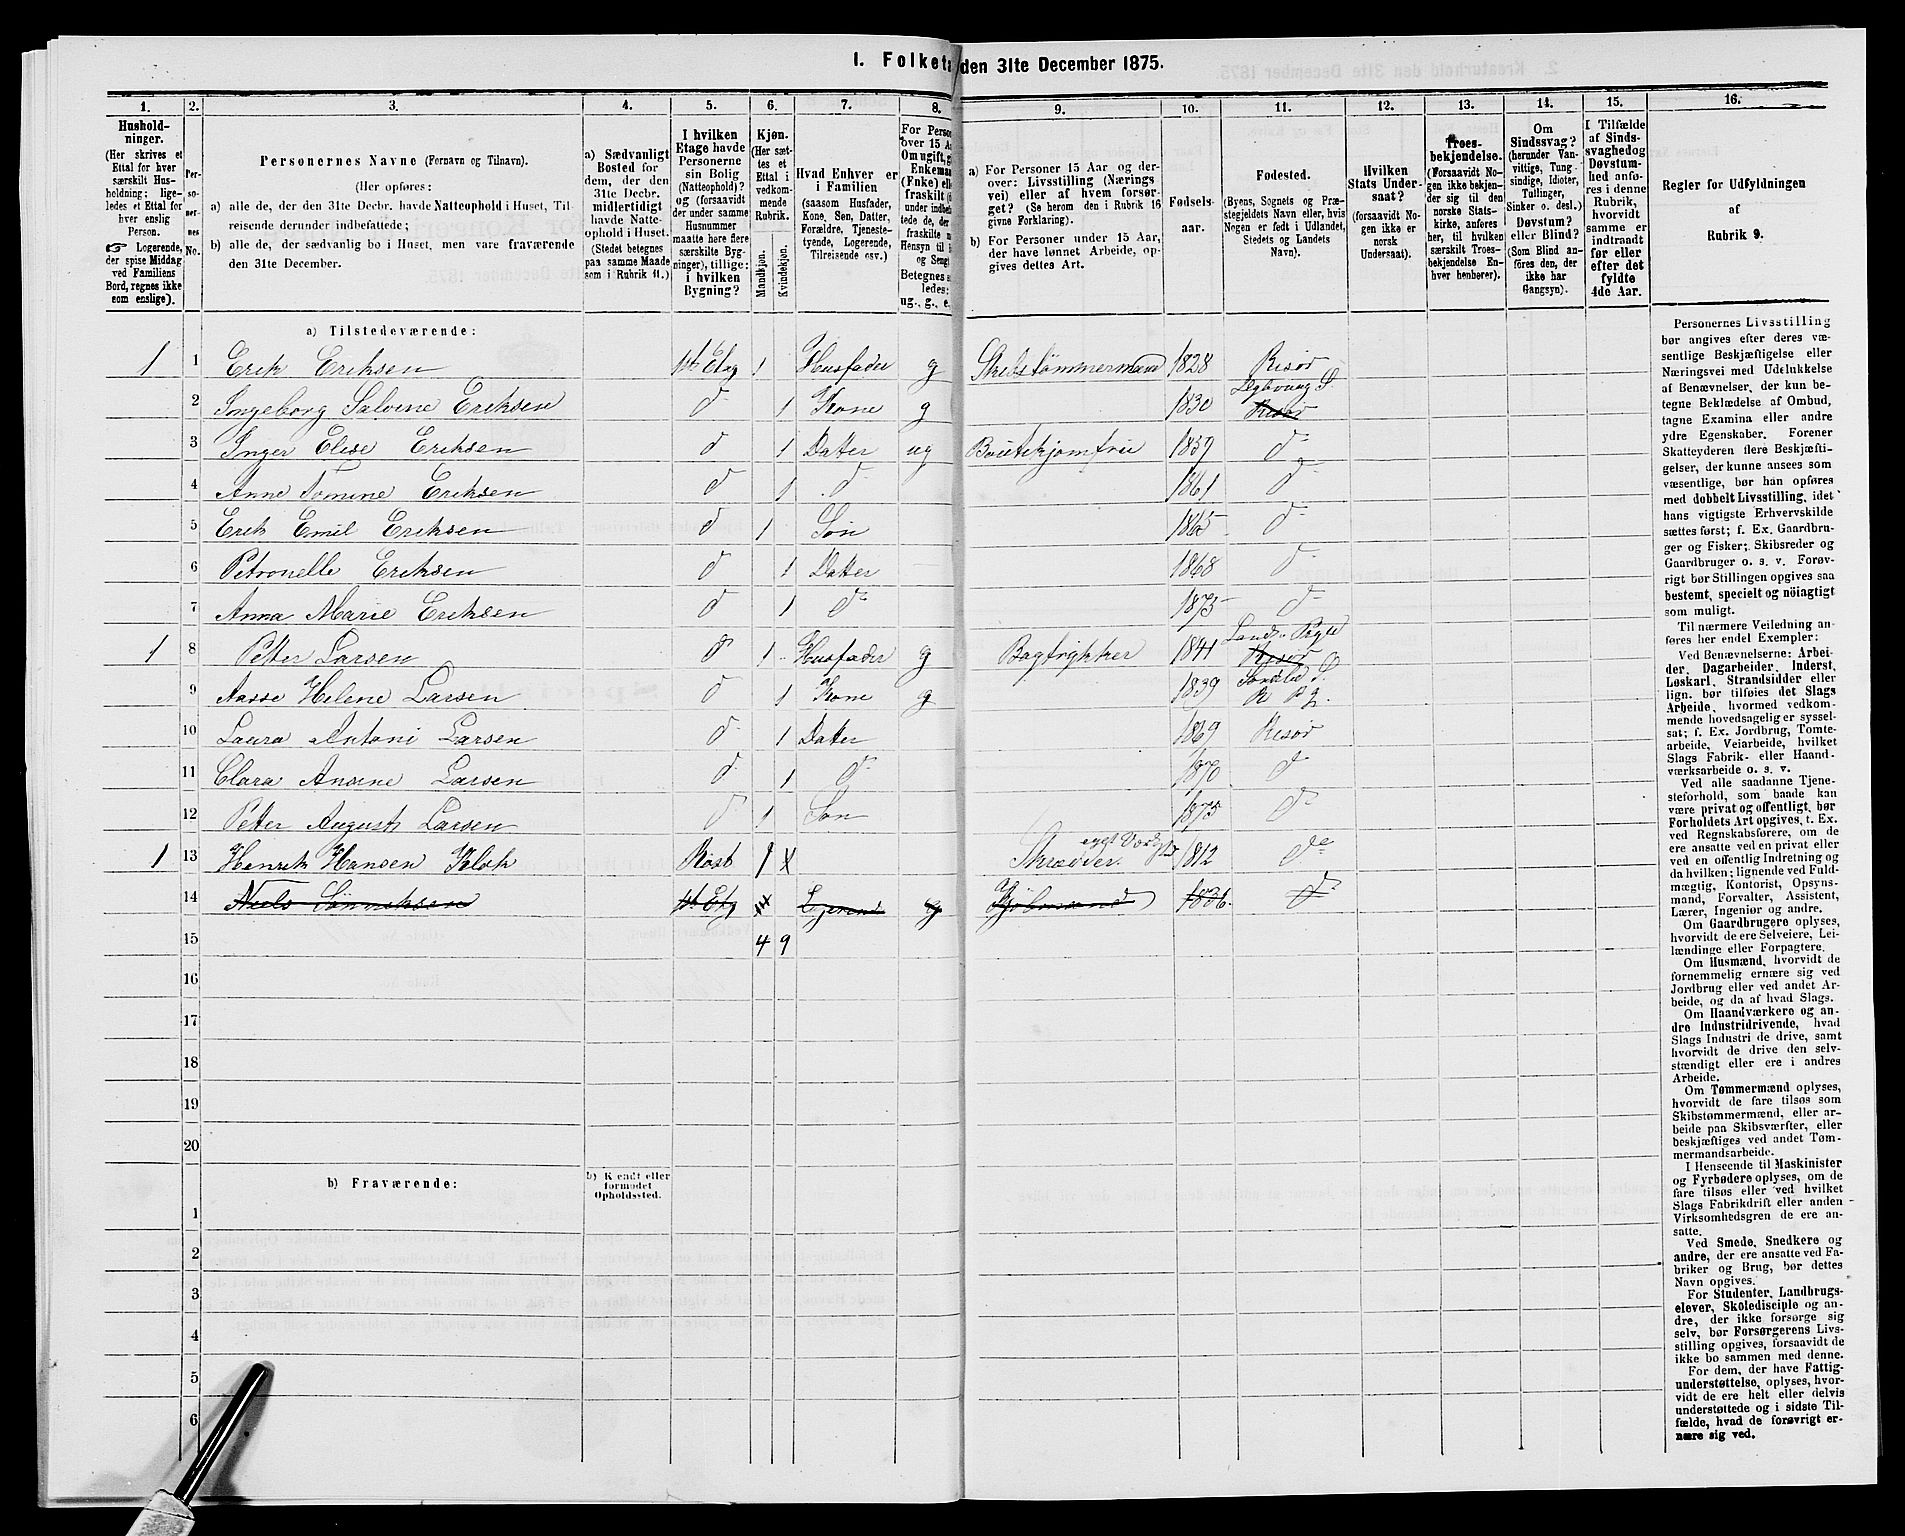 1. Folketæ den 31te December 1875.
1. 2. 3. 4. 5. 6. 7. 8. 9. 10. 11. 12. 13. 14. 15. 16.
Hushold-
ninger.
(Her skrives et
Ettal for hver
særskilt Hus-
holdning; lige-
ledes et Ettal for
hver enslig
Person.
☞ Logerende,
der spise Middag
ved Familiens
Bord, regnes ikke
som enslige).
Per-
so-
ner-
nes
No.
Personernes Navne (Fornavn og Tilnavn).
(Her opføres:
a) alle de, der den 31te Decbr. havde Natteophold i Huset, Til-
reisende derunder indbefattede;
b) alle de, der sædvanlig bo i Huset, men vare fraværende
den 31te December.
a) Sædvanligt
Bosted for
dem, der den
31te Decbr.
midlertidigt
havde Natte-
ophold i Huset.
(Stedet betegnes
paa samme Maade
som i Rubrik 11.)
I hvilken
Etage havde
Personerne
sin Bolig
(Natteophold)?
og (forsaavidt
der under samme
Husnummer
maatte høre flere
særskilte Byg-
ninger), tillige:
i hvilken
Bygning?
Kjøn.
(Her sæt-
tes et
Ettal i
vedkom-
mende
Rubrik.
Mandkjøn.
Kvindekjøn.
Hvad Enhver er
i Familien
(saasom Husfader,
Kone, Søn, Datter,
Forældre, Tjeneste-
tyende, Logerende,
Tilreisende osv.)
For Perso
over 15 A
Om ugift, g
Enkema
(Fnke) ell
fraskilt (
under indbe
tede de,
fraskilte
Hensyn til
og Seng
Betegnes s
ledes:
ug., g., e.
a) For Personer 15 Aar og der-
over: Livsstilling (Nærings
vei) eller af hvem forsør-
get? (Se herom den i Rubrik 16
givne Forklaring).
b) For Personer under 15 Aar,
der have lønnet Arbeide, op-
gives dettes Art.
Fødsels-
aar.
Fødested.
(Byens, Sognets og Præ-
stegjeldets Navn eller, hvis
Nogen er født i Udlandet,
Stedets og Landets
Navn).
Hvilken
Stats Under-
saat?
(forsaavidt No-
gen ikke er
norsk
Undersaat).
Troes-
bekjendelse.
(Forsaavidt No-
gen ikke bekjen-
der sig til den
norske Stats-
kirke, anføres
her, til hvilken
særskilt Troes-
bekjendelse En-
hver henhører).
Om
Sindssvag?
(herunder Van-
vittige, Tung-
sindige, Idioter,
Tullinger,
Sinker o. desl.)
Døvstum?
eller Blind?
(Som Blind an-
føres den, der
ikke har
Gangsyn).
I Tilfælde
af Sinds-
svaghedog
Døvstum-
hed anfø-
res i denne
Rubrik,
hvorvidt
samme er
indtraadt
før eller
efter det
fyldte
4de Aar.
Regler for Udfyldningen
af
Rubrik 9.
a) Tilstedeværende:
1 1 Erik Eriksen 1ste Etag 1 Husfader g Skibstømmermand 1828 Risør
2 Ingeborg Salvine Eriksen d 1 Kone g 1830 Risør
3 Inger Elise Eriksen d 1 Datter ug 1859 d
4 Anne Tomine Eriksen d 1 d 1861 d
5 Erik Emil Eriksen d 1 Søn 1865 d
6 Petronelle Eriksen d 1 Datter 1868 d
7 Anna Marie Eriksen d 1 d 1873 d
1 8 Petter Larsen d 1 Husfader g 1841 Risør
9 Aasse Helene Larsen d 1 Kone g 1839 Søndeled S. R Pg.
10 Laura Antoni Larsen d 1 Datter 1869 Risør
11 Clara Ansine Larsen d 1 d 1870 d
12 Petter August Larsen d 1 Søn 1873 d
1 13 Henrik Hansen Klok Kost 1 Skræder. 1812 do
14 Niels Sønniksen 1ste Etg Logerende g 1836 d
15 4 9
16
17
18
19
20
b) Fraværende:
b) Kjendt eller
formodet
Opholdssted.
1
2
3
4
5
6
Personernes Livsstilling
bør angives efter deres væ-
sentlige Beskjæftigelse eller
Næringsvei med Udelukkelse
af Benævnelser, der kun be-
tegne Beklædelse af Ombud,
tagne Examina eller andre
ydre Egenskaber. Forener
Skatteyderen flere Beskjæfti-
gelser, der kunne ansees som
væsentlige, bør han opføres
med dobbelt Livsstilling, idet
hans vigtigste Erhvervskilde
sættes først; f. Ex. Gaardbru-
ger og Fisker; Skibsreder og
Gaardbruger o. s. v. Forøv-
rigt bør Stillingen opgives saa
bestemt, specielt og nöiagtigt
som muligt.
Til nærmere Veiledning an-
føres her endel Exempler:
Ved Benævnelserne: Arbei-
der, Dagarbeider, Inderst,
Løskarl, Strandsidder eller
lign. bør tilføies det Slags
Arbeide, hvormed vedkom-
mende hovedsagelig er syssel-
sat; f. Ex. Jordbrug, Tomte-
arbeide, Veiarbeide, hvilket
Slags Fabrik- eller Haand-
værksarbeide o. s. v.
Ved alle saadanne Tjene-
steforhold, som baade kan
være privat og offentligt, bør
Forholdets Art opgives, t. Ex.
ved Regnskabsførere, om de
ere ansatte ved en privat eller
ved en offentlig Indretning og
da hvilken; lignende ved Fuld-
mægtig, Kontorist, Opsyns-
mand, Forvalter, Assistent,
Lærer, Ingeniør og andre.
Om Gaardbrugere oplyses,
hvorvidt de ere Selveiere, Lei-
lændinge eller Forpagtere.
Om Husmænd, hvorvidt de
fornemmelig ernære sig ved
Jordbrug eller ved andet Ar-
beide, og da af hvad Slags.
Om Haandværkere og an-
dre Industridrivende, hvad
Slags Industri de drive, samt
hvorvidt de drive den selv-
stændigt eller ere i andres
Arbeide.
Om Tømmermænd oplyses,
hvorvidt de fare tilsøs som
Skibstømmermænd, eller ar-
beide paa Skibsværfter, eller
beskjæftiges ved andet Tøm-
mermandsarbeide.
I Henseende til Maskinister
og Fyrbødere oplyses, om de
fare tilsøs eller ved hvilket
Slags Fabrikdrift eller anden
Virksomhedsgren de ere an-
satte.
Ved Smede, Snedkere og
andre, der ere ansatte ved Fa-
briker og Brug, bør dettes
Navn opgives.
For Studenter, Landbrugs-
elever, Skoledisciple og an-
dre, der ikke forsørge sig
selv, bør Forsørgerens Livs-
stilling opgives, forsaavidt de
ikke bo sammen med denne.
For dem, der have Fattig-
understøttelse, oplyses, hvor-
vidt de ere helt eller delvis
understøttede og i sidste Til-
fælde, hvad de forøvrigt er-
nære sig ved.